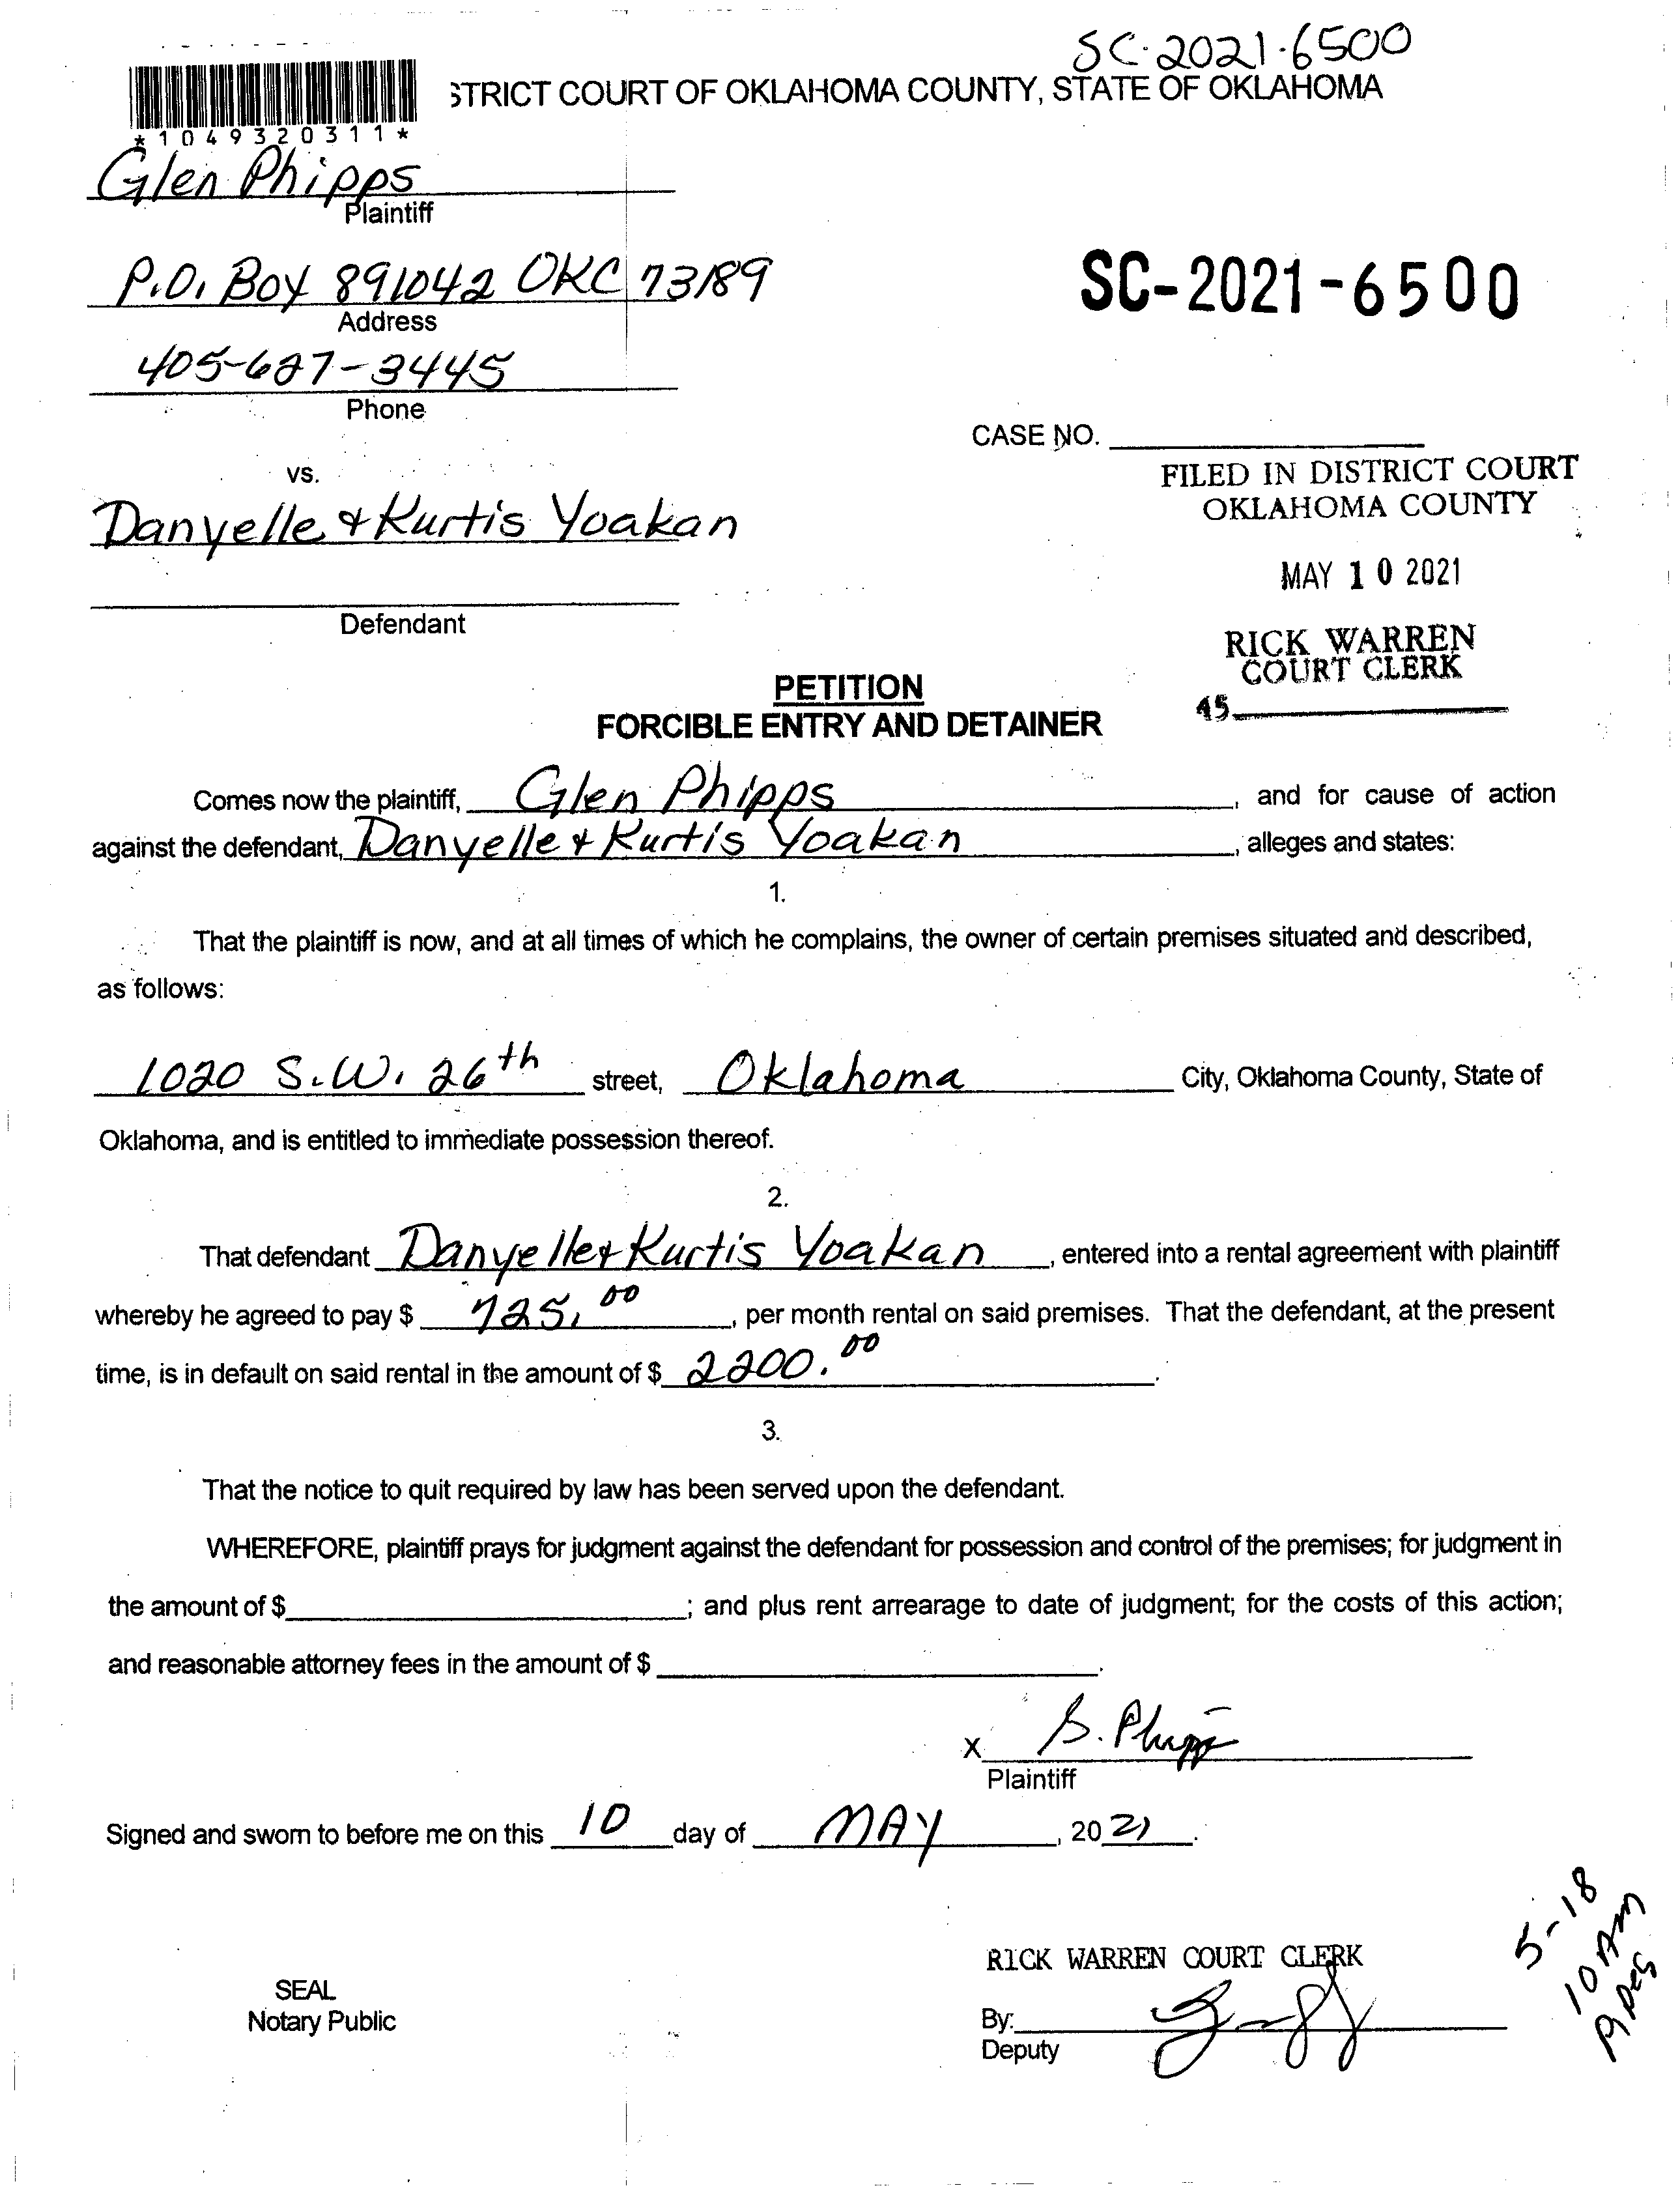 SC-2021-6500
STRICT COURT OF OKLAHOMA COUNTY, STATE OF OKLAHOMA
*1049320311*
Glen Phipps
Plaintiff
P.O. Box 891042 OKC 73189
Address
SC-2021-6500
405-627-3445
Phone
CASE NO.
vs.
FILED IN DISTRICT COURT
OKLAHOMA COUNTY
Danyelle & Kurtis Yoakan
MAY 10 2021
Defendant
RICK WARREN
COURT CLERK
45
PETITION
FORCIBLE ENTRY AND DETAINER
Comes now the plaintiff, Glen Phipps, and for cause of action
against the defendant, Danyelle & Kurtis Yoakan, alleges and states:
1.
That the plaintiff is now, and at all times of which he complains, the owner of certain premises situated and described,
as follows:
1020 S.W. 26th street, Oklahoma City, Oklahoma County, State of
Oklahoma, and is entitled to immediate possession thereof.
2.
That defendant Danyelle & Kurtis Yoakan, entered into a rental agreement with plaintiff
whereby he agreed to pay $ 725.00, per month rental on said premises. That the defendant, at the present
time, is in default on said rental in the amount of $ 2200.00.
3.
That the notice to quit required by law has been served upon the defendant.
WHEREFORE, plaintiff prays for judgment against the defendant for possession and control of the premises; for judgment in
the amount of $; and plus rent arrearage to date of judgment; for the costs of this action;
and reasonable attorney fees in the amount of $.
X G. Phipps
Plaintiff
Signed and sworn to before me on this 10 day of MAY, 2021.
5-18
10 AM
RICK WARREN COURT CLERK
SEAL
Notary Public
By:
Deputy